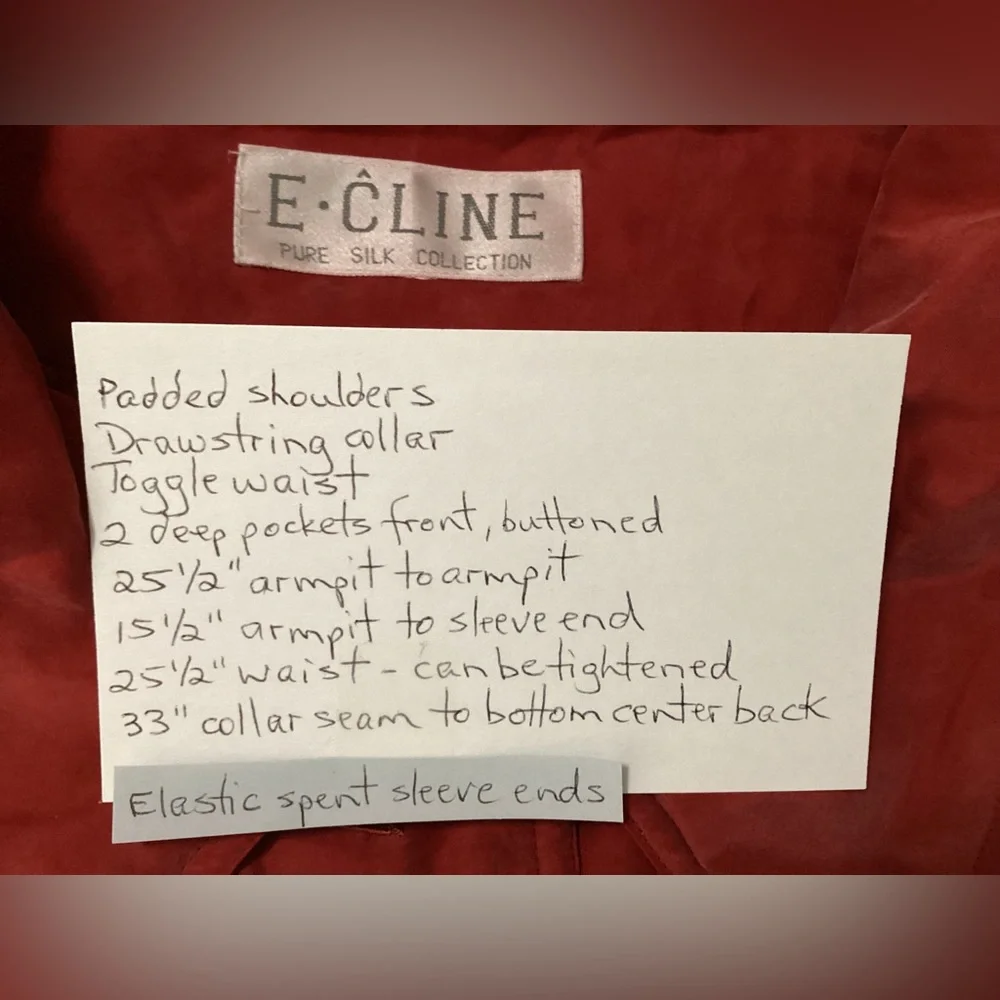 E·ĈLINE
PURE SILK COLLECTION
Padded shoulders
Drawstring collar
Toggle waist
2 deep pockets front, buttoned
25 1/2" armpit to armpit
15 1/2" armpit to sleeve end
25 1/2" waist - can be tightened
33" collar seam to bottom center back
Elastic spent sleeve ends